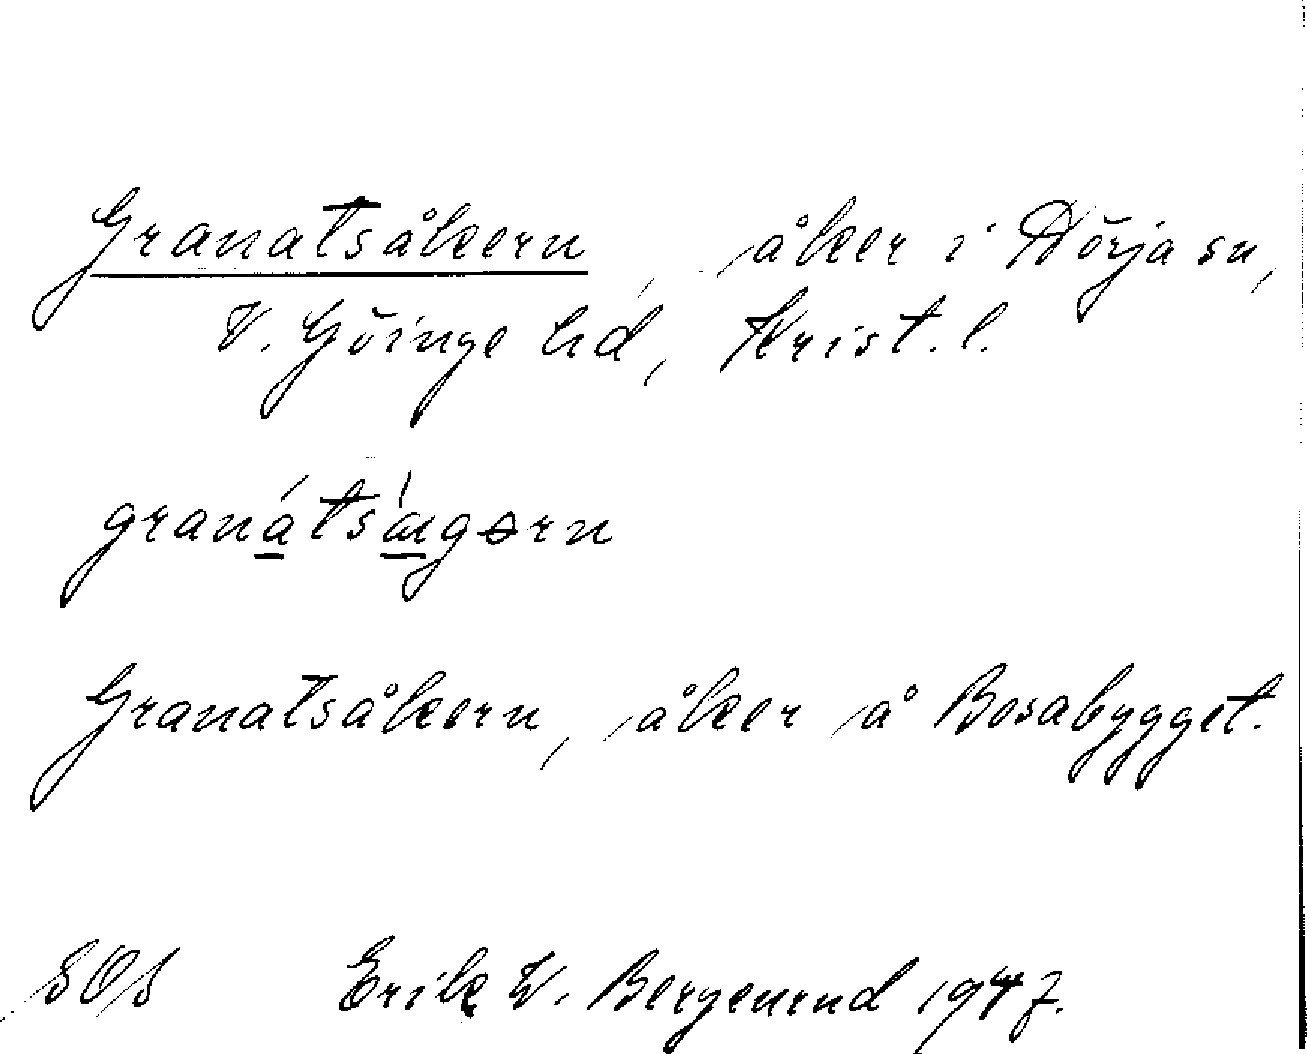 Granatsåkern, åker i Hörja sn,
V. Göinge hd, Krist. l.
granátsǽgərn
Granatsåkern, åker å Bosabygget.
SOS Erik W. Bergenrud 1947.